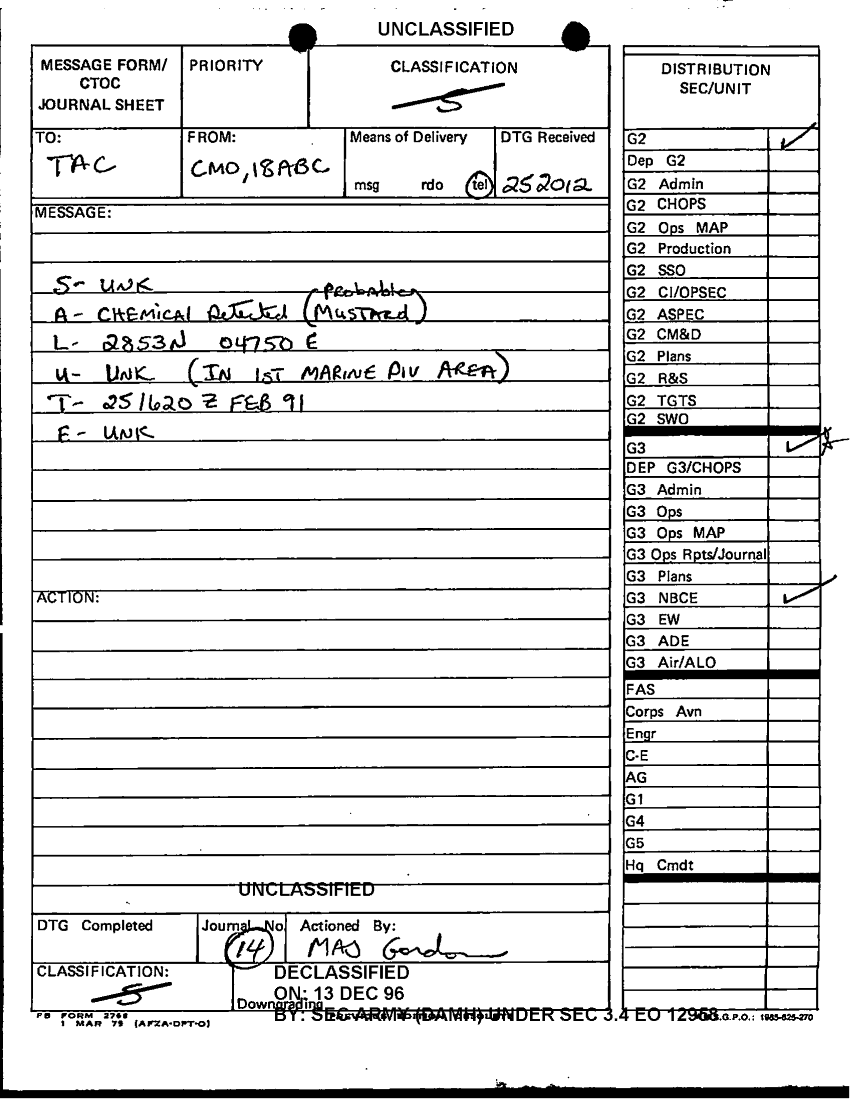 UNCLASSIFIED
MESSAGE FORM/
CTOC
JOURNAL SHEET
PRIORITY
CLASSIFICATION
S
TO:
TAC
FROM:
CMO, 18ABC
Means of Delivery
msg rdo tel
DTG Received
252012
MESSAGE:
S- UNK
A- CHEMICAL Detected (Probable MUSTARD)
L- 2853N 04750 E
U- UNK (IN 1ST MARINE DIV AREA)
T- 251620 Z FEB 91
E- UNK
ACTION:
UNCLASSIFIED
DTG Completed
Journal No.
14
Actioned By:
MAJ Gordon
CLASSIFICATION:
S
DECLASSIFIED
ON: 13 DEC 96
Downgrading
BY: SEC ARMY (DAMH) UNDER SEC 3.4 EO 12958
FB FORM 2768
1 MAR 79 (AFZA-DPT-O)
G.P.O.: 1985-625-270
DISTRIBUTION
SEC/UNIT
G2
Dep G2
G2 Admin
G2 CHOPS
G2 Ops MAP
G2 Production
G2 SSO
G2 CI/OPSEC
G2 ASPEC
G2 CM&D
G2 Plans
G2 R&S
G2 TGTS
G2 SWO
G3
DEP G3/CHOPS
G3 Admin
G3 Ops
G3 Ops MAP
G3 Ops Rpts/Journal
G3 Plans
G3 NBCE
G3 EW
G3 ADE
G3 Air/ALO
FAS
Corps Avn
Engr
C-E
AG
G1
G4
G5
Hq Cmdt